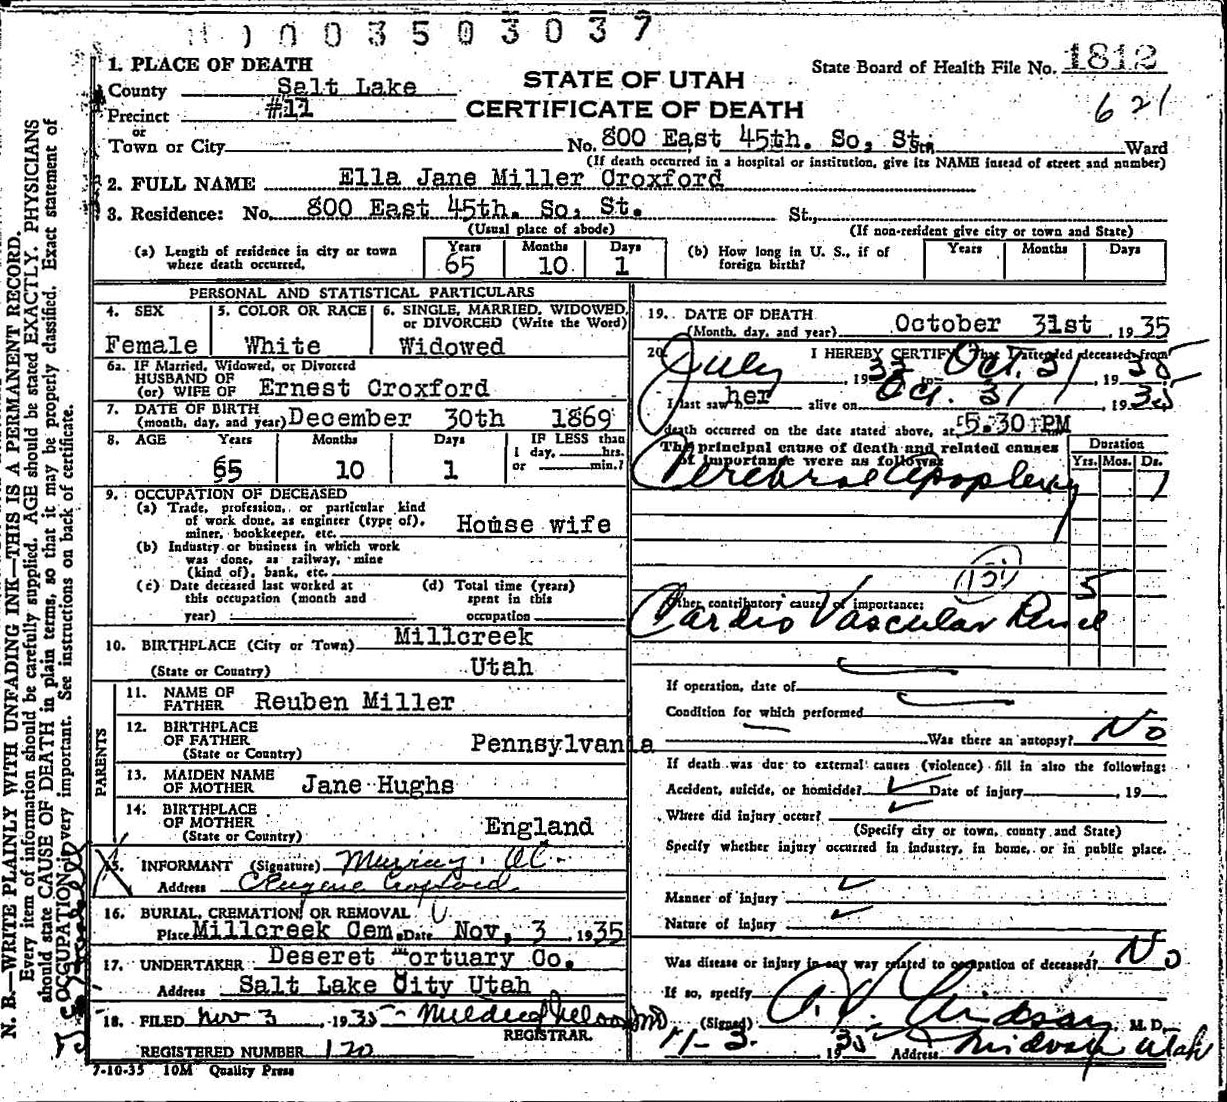 0003503037
1. PLACE OF DEATH
County Salt Lake
Precinct #11
or
Town or City
STATE OF UTAH
CERTIFICATE OF DEATH
State Board of Health File No. 1812
621
No. 800 East 45th. So, St. Ward
(If death occurred in a hospital or institution, give its NAME instead of street and number)
2. FULL NAME Ella Jane Miller Croxford
3. Residence: No. 800 East 45th. So, St. St.,
(Usual place of abode) (If non-resident give city or town and State)
(a) Length of residence in city or town where death occurred. Years 65 Months 10 Days 1
(b) How long in U. S., if of foreign birth? Years Months Days
PERSONAL AND STATISTICAL PARTICULARS
4. SEX Female
5. COLOR OR RACE White
6. SINGLE, MARRIED, WIDOWED, or DIVORCED (Write the Word) Widowed
6a. IF Married, Widowed, or Divorced
HUSBAND OF
(or) WIFE OF Ernest Croxford
7. DATE OF BIRTH
(month, day, and year) December 30th 1869
8. AGE Years 65 Months 10 Days 1 IF LESS than
1 day, hrs.
or min.?
9. OCCUPATION OF DECEASED
(a) Trade, profession, or particular kind
of work done, as engineer (type of),
miner, bookkeeper, etc. House wife
(b) Industry or business in which work
was done, as railway, mine
(kind of), bank, etc.
(c) Date deceased last worked at
this occupation (month and
year)
(d) Total time (years)
spent in this
occupation
10. BIRTHPLACE (City or Town) Millcreek
(State or Country) Utah
PARENTS
11. NAME OF FATHER Reuben Miller
12. BIRTHPLACE OF FATHER
(State or Country) Pennsylvania
13. MAIDEN NAME OF MOTHER Jane Hughs
14. BIRTHPLACE OF MOTHER
(State or Country) England
15. INFORMANT (Signature) Murray
Address Eugene Croxford
16. BURIAL, CREMATION OR REMOVAL
Place Millcreek Cem. Date Nov, 3 1935
17. UNDERTAKER Deseret Mortuary Co.
Address Salt Lake City Utah
18. FILED Nov 3, 1935 Mildred
REGISTRAR.
REGISTERED NUMBER 120
7-10-35 10M Quality Press
19. DATE OF DEATH
(Month, day, and year) October 31st, 1935
20. I HEREBY CERTIFY That I attended deceased from
July, 1935 to Oct. 31, 1935
I last saw her alive on Oct. 31, 1935
death occurred on the date stated above, at 5:30 PM
The principal cause of death and related causes
of importance were as follows:
Duration
Yrs. Mos. Ds.
Cerebral Apoplexy 1
131
5
Other contributory causes of importance:
Cardio Vascular Renal
If operation, date of
Condition for which performed
Was there an autopsy? No
If death was due to external causes (violence) fill in also the following:
Accident, suicide, or homicide? Date of injury , 19
Where did injury occur?
(Specify city or town, county and State)
Specify whether injury occurred in industry, in home, or in public place.
Manner of injury
Nature of injury
Was disease or injury in any way related to occupation of deceased? No
If so, specify
(Signed) Lindsay M. D.
11-3. 1935 Address Midvale Utah
N. B.—WRITE PLAINLY WITH UNFADING INK—THIS IS A PERMANENT RECORD.
Every item of information should be carefully supplied. AGE should be stated EXACTLY. PHYSICIANS
should state CAUSE OF DEATH in plain terms, so that it may be properly classified. Exact statement of
OCCUPATION very important. See instructions on back of certificate.